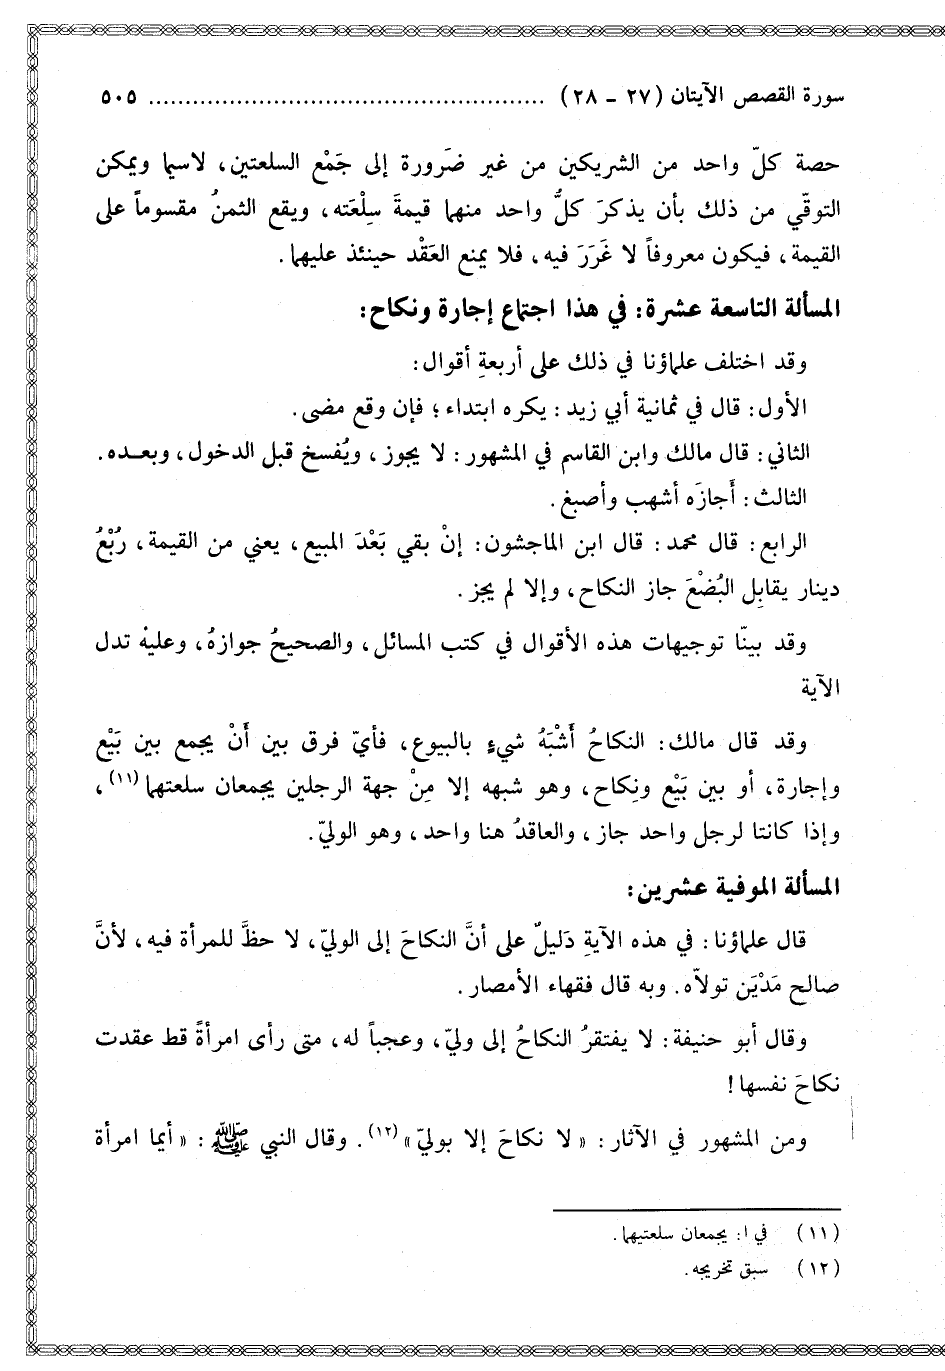 سورة القصص الآيتان (٢٧ ـ ٢٨) ................................................ ٥٠٥
حصة كلّ واحد من الشريكين من غير ضَرورة إلى جَمْع السلعتين، لاسيما ويمكن
التوقّي من ذلك بأن يذكرَ كلُّ واحد منهما قيمةَ سِلْعَته، ويقع الثمنُ مقسوماً على
القيمة، فيكون معروفاً لا غَرَرَ فيه، فلا يمنع العَقْد حينئذ عليهما.
المسألة التاسعة عشرة: في هذا اجتماع إجارة ونكاح:
وقد اختلف علماؤنا في ذلك على أربعةِ أقوال:
الأول: قال في ثمانية أبي زيد: يكره ابتداء؛ فإن وقع مضى.
الثاني: قال مالك وابن القاسم في المشهور: لا يجوز، ويُفسخ قبل الدخول، وبعـده.
الثالث: أَجازَه أشهب وأصبغ.
الرابع: قال محمد: قال ابن الماجشون: إنْ بقي بَعْدَ المبيع، يعني من القيمة، رُبْعُ
دينار يقابِل البُضْعَ جاز النكاح، وإلا لم يجز.
وقد بينّا توجيهات هذه الأقوال في كتب المسائل، والصحيحُ جوازهُ، وعليْه تدل
الآية
وقد قال مالك: النكاحُ أَشْبَهُ شيءٍ بالبيوع، فأيّ فرق بين أنْ يجمع بين بَيْع
وإجارة، أو بين بَيْع ونِكاح، وهو شبهه إلا مِنْ جهة الرجلين يجمعان سلعتهما(١١)،
وإذا كانتا لرجل واحد جاز، والعاقدُ هنا واحد، وهو الوليّ.
المسألة الموفية عشرين:
قال علماؤنا: في هذه الآيةِ دَليلٌ على أنَّ النكاحَ إلى الوليّ، لا حظَّ للمرأة فيه، لأنَّ
صالح مَدْيَن تولاّه. وبه قال فقهاء الأمصار.
وقال أبو حنيفة: لا يفتقرُ النكاحُ إلى وليّ، وعجباً له، متى رأى امرأةً قط عقدت
نكاحَ نفسها!
ومن المشهور في الآثار: «لا نكاحَ إلا بوليّ»(١٢). وقال النبي ﷺ: «أيما امرأة
(١١) في ا: يجمعان سلعتيهما.
(١٢) سبق تخريجه.